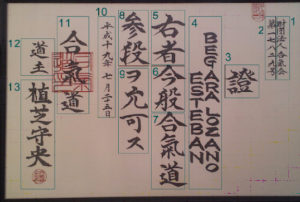 財団法人合気会
第一七八二九号
證
BEGARA LOZANO
ESTEBAN
右者今般合氣道
参段ヲ允可ス
平成十九年七月二十五日
合氣道
道主
植芝守央
1
2
3
4
5
6
7
8
9
10
11
12
13